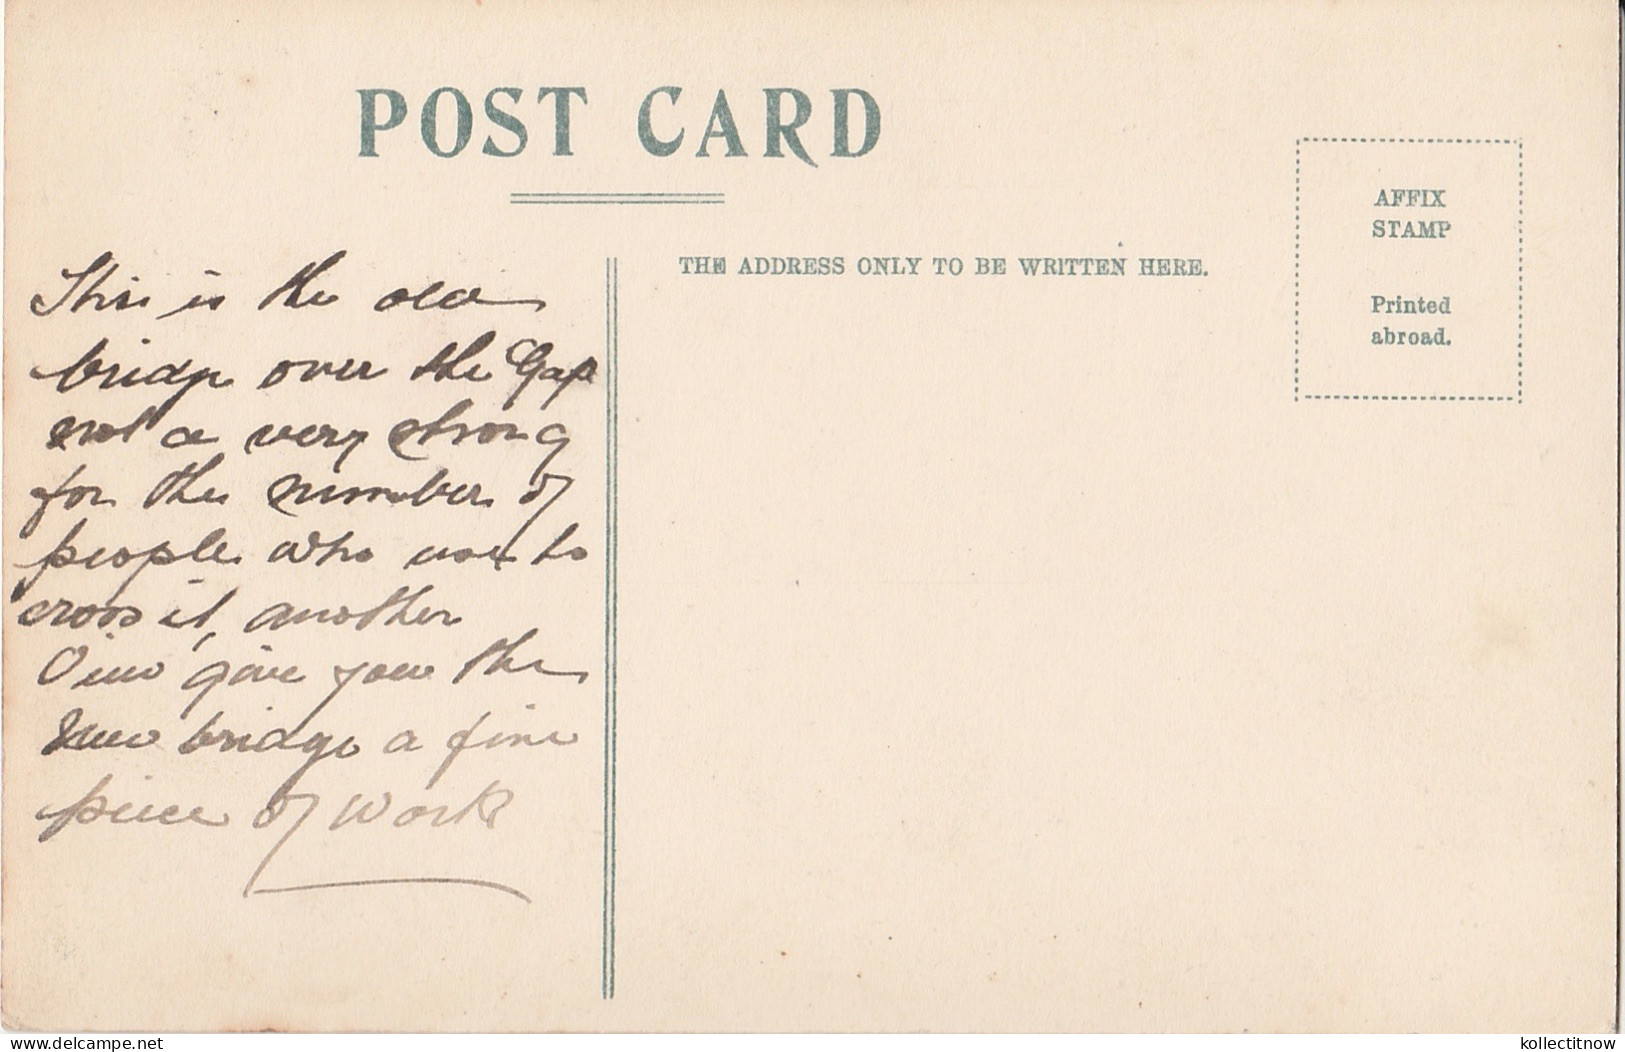 POST CARD
AFFIX
STAMP
Printed
abroad.
THE ADDRESS ONLY TO BE WRITTEN HERE.
This is the old
bridge over the Gap
not a very strong
for the number of
people who use to
cross it, another
View give you the
New bridge a fine
piece of work
delcampe.net
kollectitnow